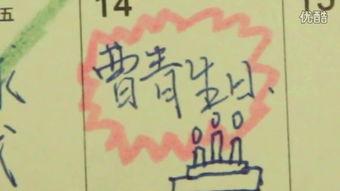 五 14 15
优酷
曹青生日、